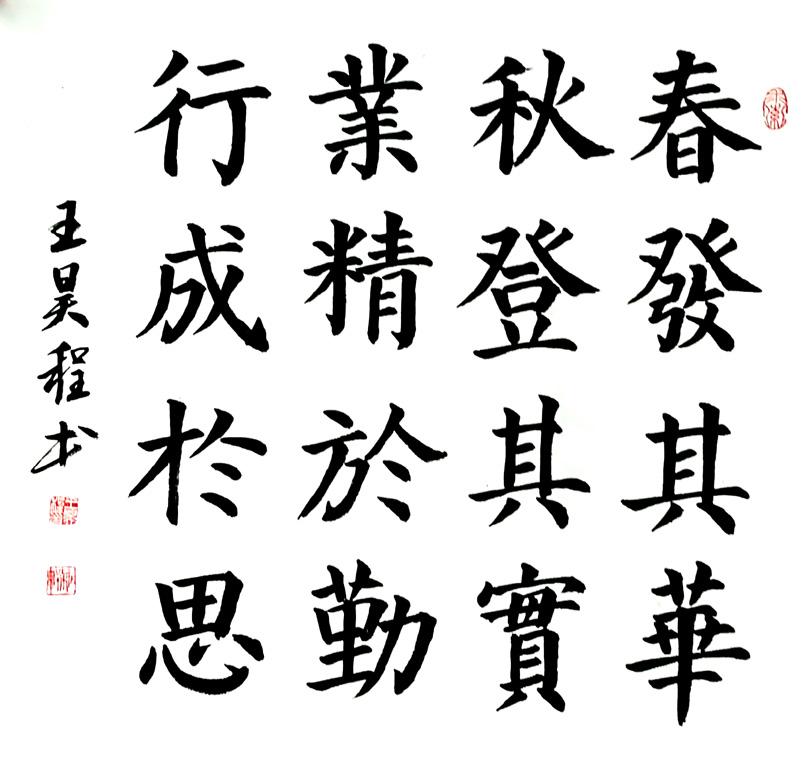 春發其華
秋登其實
業精於勤
行成於思
王昊程书